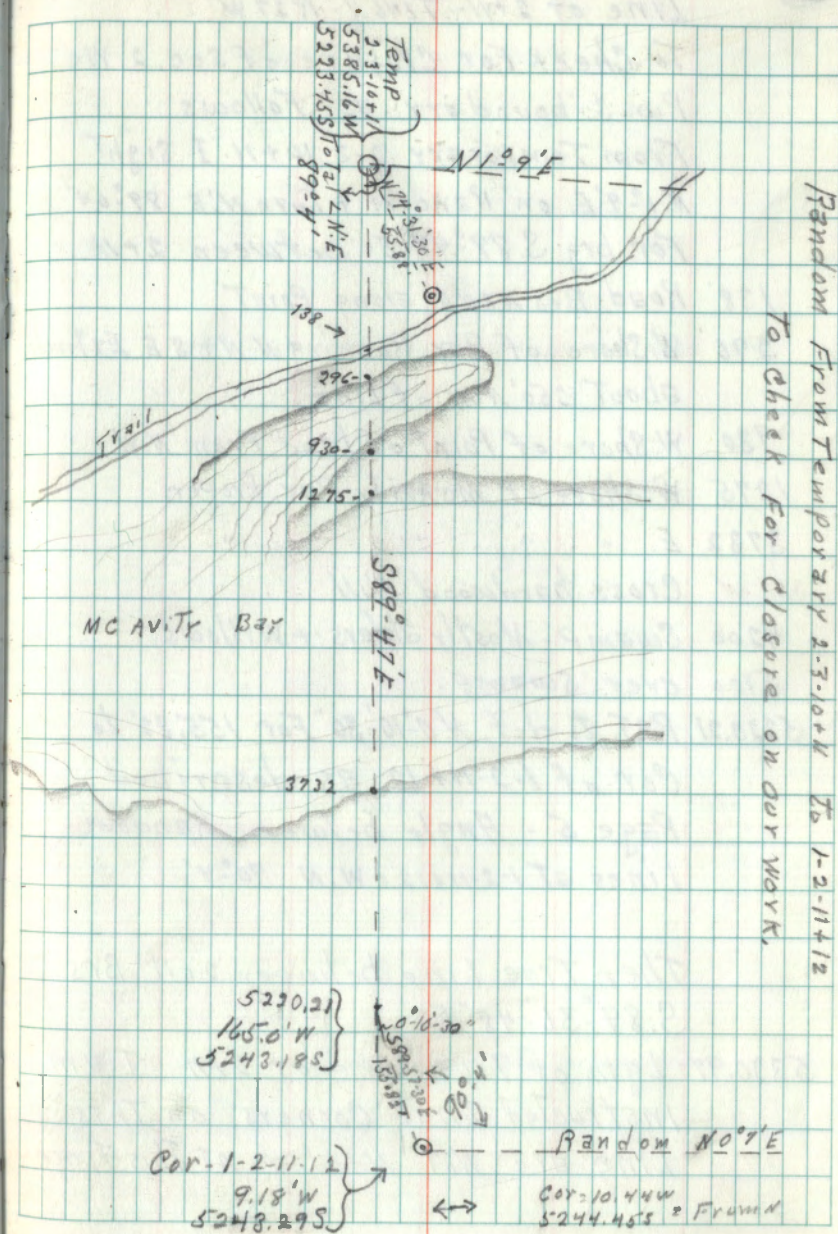 Random From Temporary 2-3-10+11 to 1-2-11+12
To Check For Closure on our work.
Temp
2-3-10+11
5385.16 W
5223.45 S
Total ∠ N.E
89°-4'
N1°9'E
31'-30"E
138
296-
930-
1275-
Trail
S89°-47'E
MC AVITY Bay
3732
5220.21
165.0' W
5243.18 S
0°-16'-30"
S89°-57'-30"E
90°-4'
Random N0°7'E
Cor-1-2-11-12
9.18' W
5243.29 S
Cor = 10.44 W
5244.45 S = From N